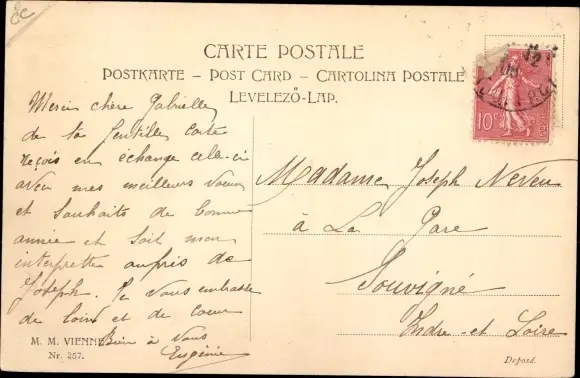 CARTE POSTALE
POSTKARTE – POST CARD – CARTOLINA POSTALE
LEVELEZŐ-LAP.
Merci chère Gabrielle
de ta gentille carte
reçois en échange celle-ci
avec mes meilleurs voeux
et souhaits de bonne
année et soit mon
interprette auprès de
Joseph. Je vous embrasse
de loin et de coeur
Bien à vous
Eugénie
Madame Joseph Neveu
à La Gare
Souvigné
Indre-et-Loire
10c
M. M. VIENNE
Nr. 257.
Deposé.